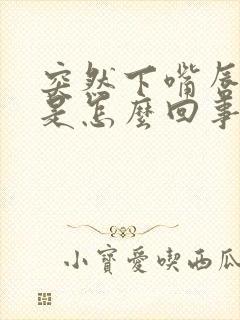 突然下嘴唇
是怎麼回事
小寶愛喫西瓜